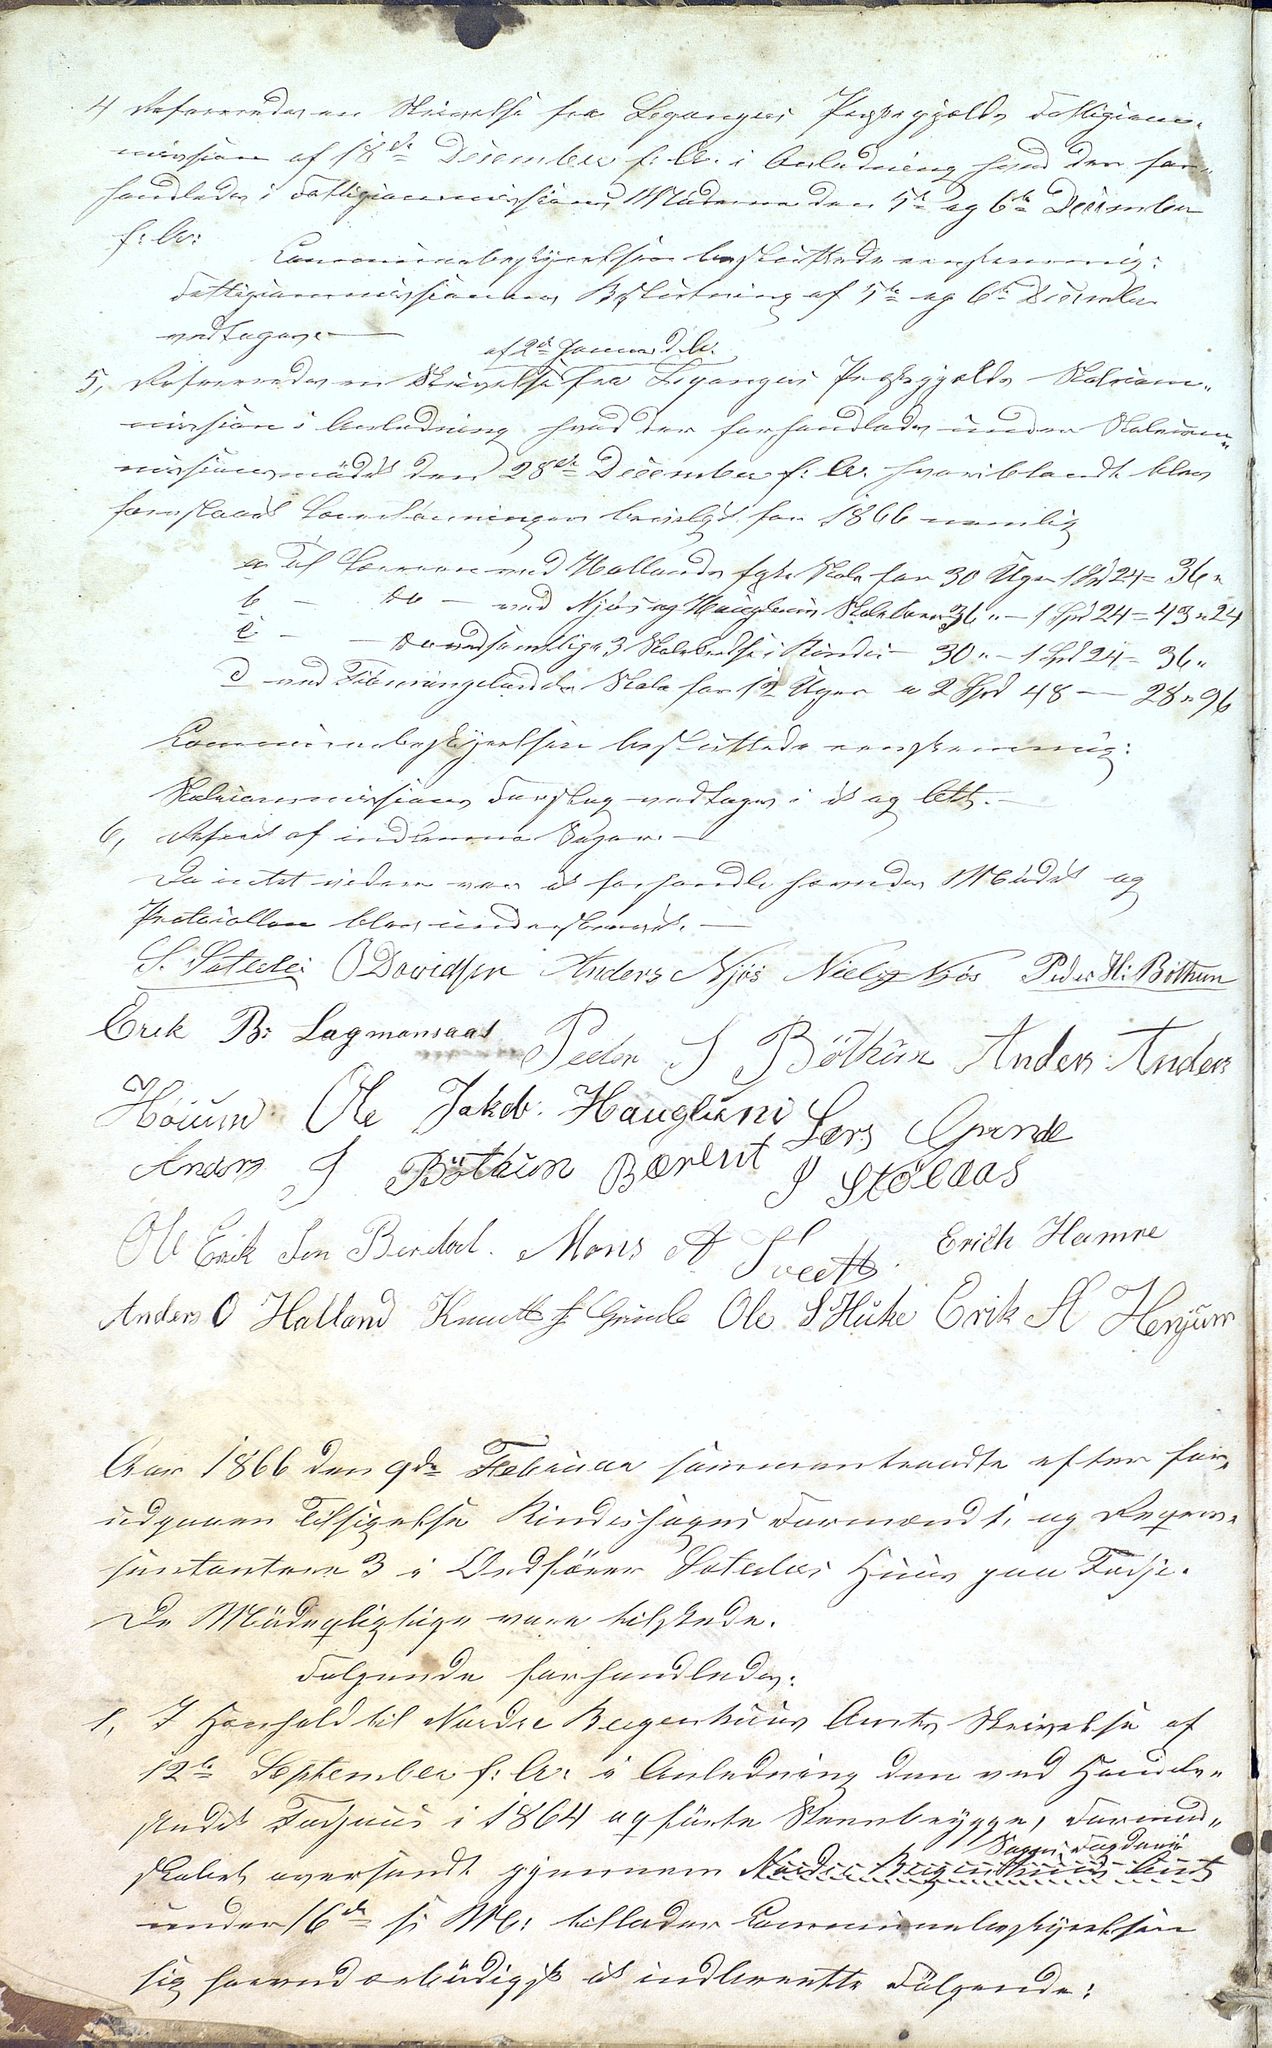 4 Refereredes en Skrivelse fra Leganger Præstegjælds Fattigcom-
mission af 18de December f: A. i Anledning hvad der for-
handledes i Fattigcommissions Mødernes den 5te og 6te December
f: A:
Communebestyrelsen besluttede eenstemmig:
Fattigcommissionens Beslutning af 5te og 6te December
vedtages.
af 2de Januar d. A.
5, Refereredes en Skrivelse fra Leganger Præstegjælds Skolecom-
mission i Anledning hvad der forhandledes under Skolecom-
missionsmødet den 28de December f: A. hvoriblandt blev
foreslaaet Lærerlønningen bevilget for 1866 nemlig
a Til Læreren ved Hallands faste Skole for 30 Uger 1 Spd 24 = 36 "
b - do - ved Njøs og Hauglum Skole 36 " - 1 Spd 24 = 43 " 24
c - - do ved samtlige 3 Skolekredse i Rinde - 30 " - 1 Spd 24 = 36 "
d ved Tiberingelandets Skole for 12 Uger a 2 Spd 48 - 28 " 96
Communebestyrelsen besluttede eenstemmig:
Skolecommissions Forslag vedtages i et og Alt.
6, Referat af indkomne Sager.
Da intet videre var at forhandle hævedes Mødet og
Protocollen blev underskrevet.
S. Satelei ODavidsen Anders Njøs Niels Njøs Peder H: Bøthun
Erik B: Lagmansaas Peder J Bøthun Anders Anders
Høium Ole Jakob. Hauglum Lars Grinde
Anders J Bøthun Bærent J Stølaas
Ole Erik Sen Berdal. Mons A Tveitt. Erich Hamre
Anders O Halland Knutt J Grinde Ole S Huke Erik A Henjum
Aar 1866 den 9de Februar sammentraadte efter for-
udgaaen Tilsigelse Rindesognes Formænd 1, og Repræ-
sentantere 3 i Ordfører Satelies Huus paa Fedje.
De Mødepligtige vare tilstede.
Følgende forhandledes:
1, I Henhold til Nordre Bergenhuus Amts Skrivelse af
12te September f: A. i Anledning den ved Handels-
stedet i 1864 opførte Steenbrygge, Formand-
skabet oversendt gjennem Nordre Bergenhuus Amt Sogns Fogderi
under 16de s: M: tillader Communebestyrelsen
sig herved ærbødigst at indberette Følgende: